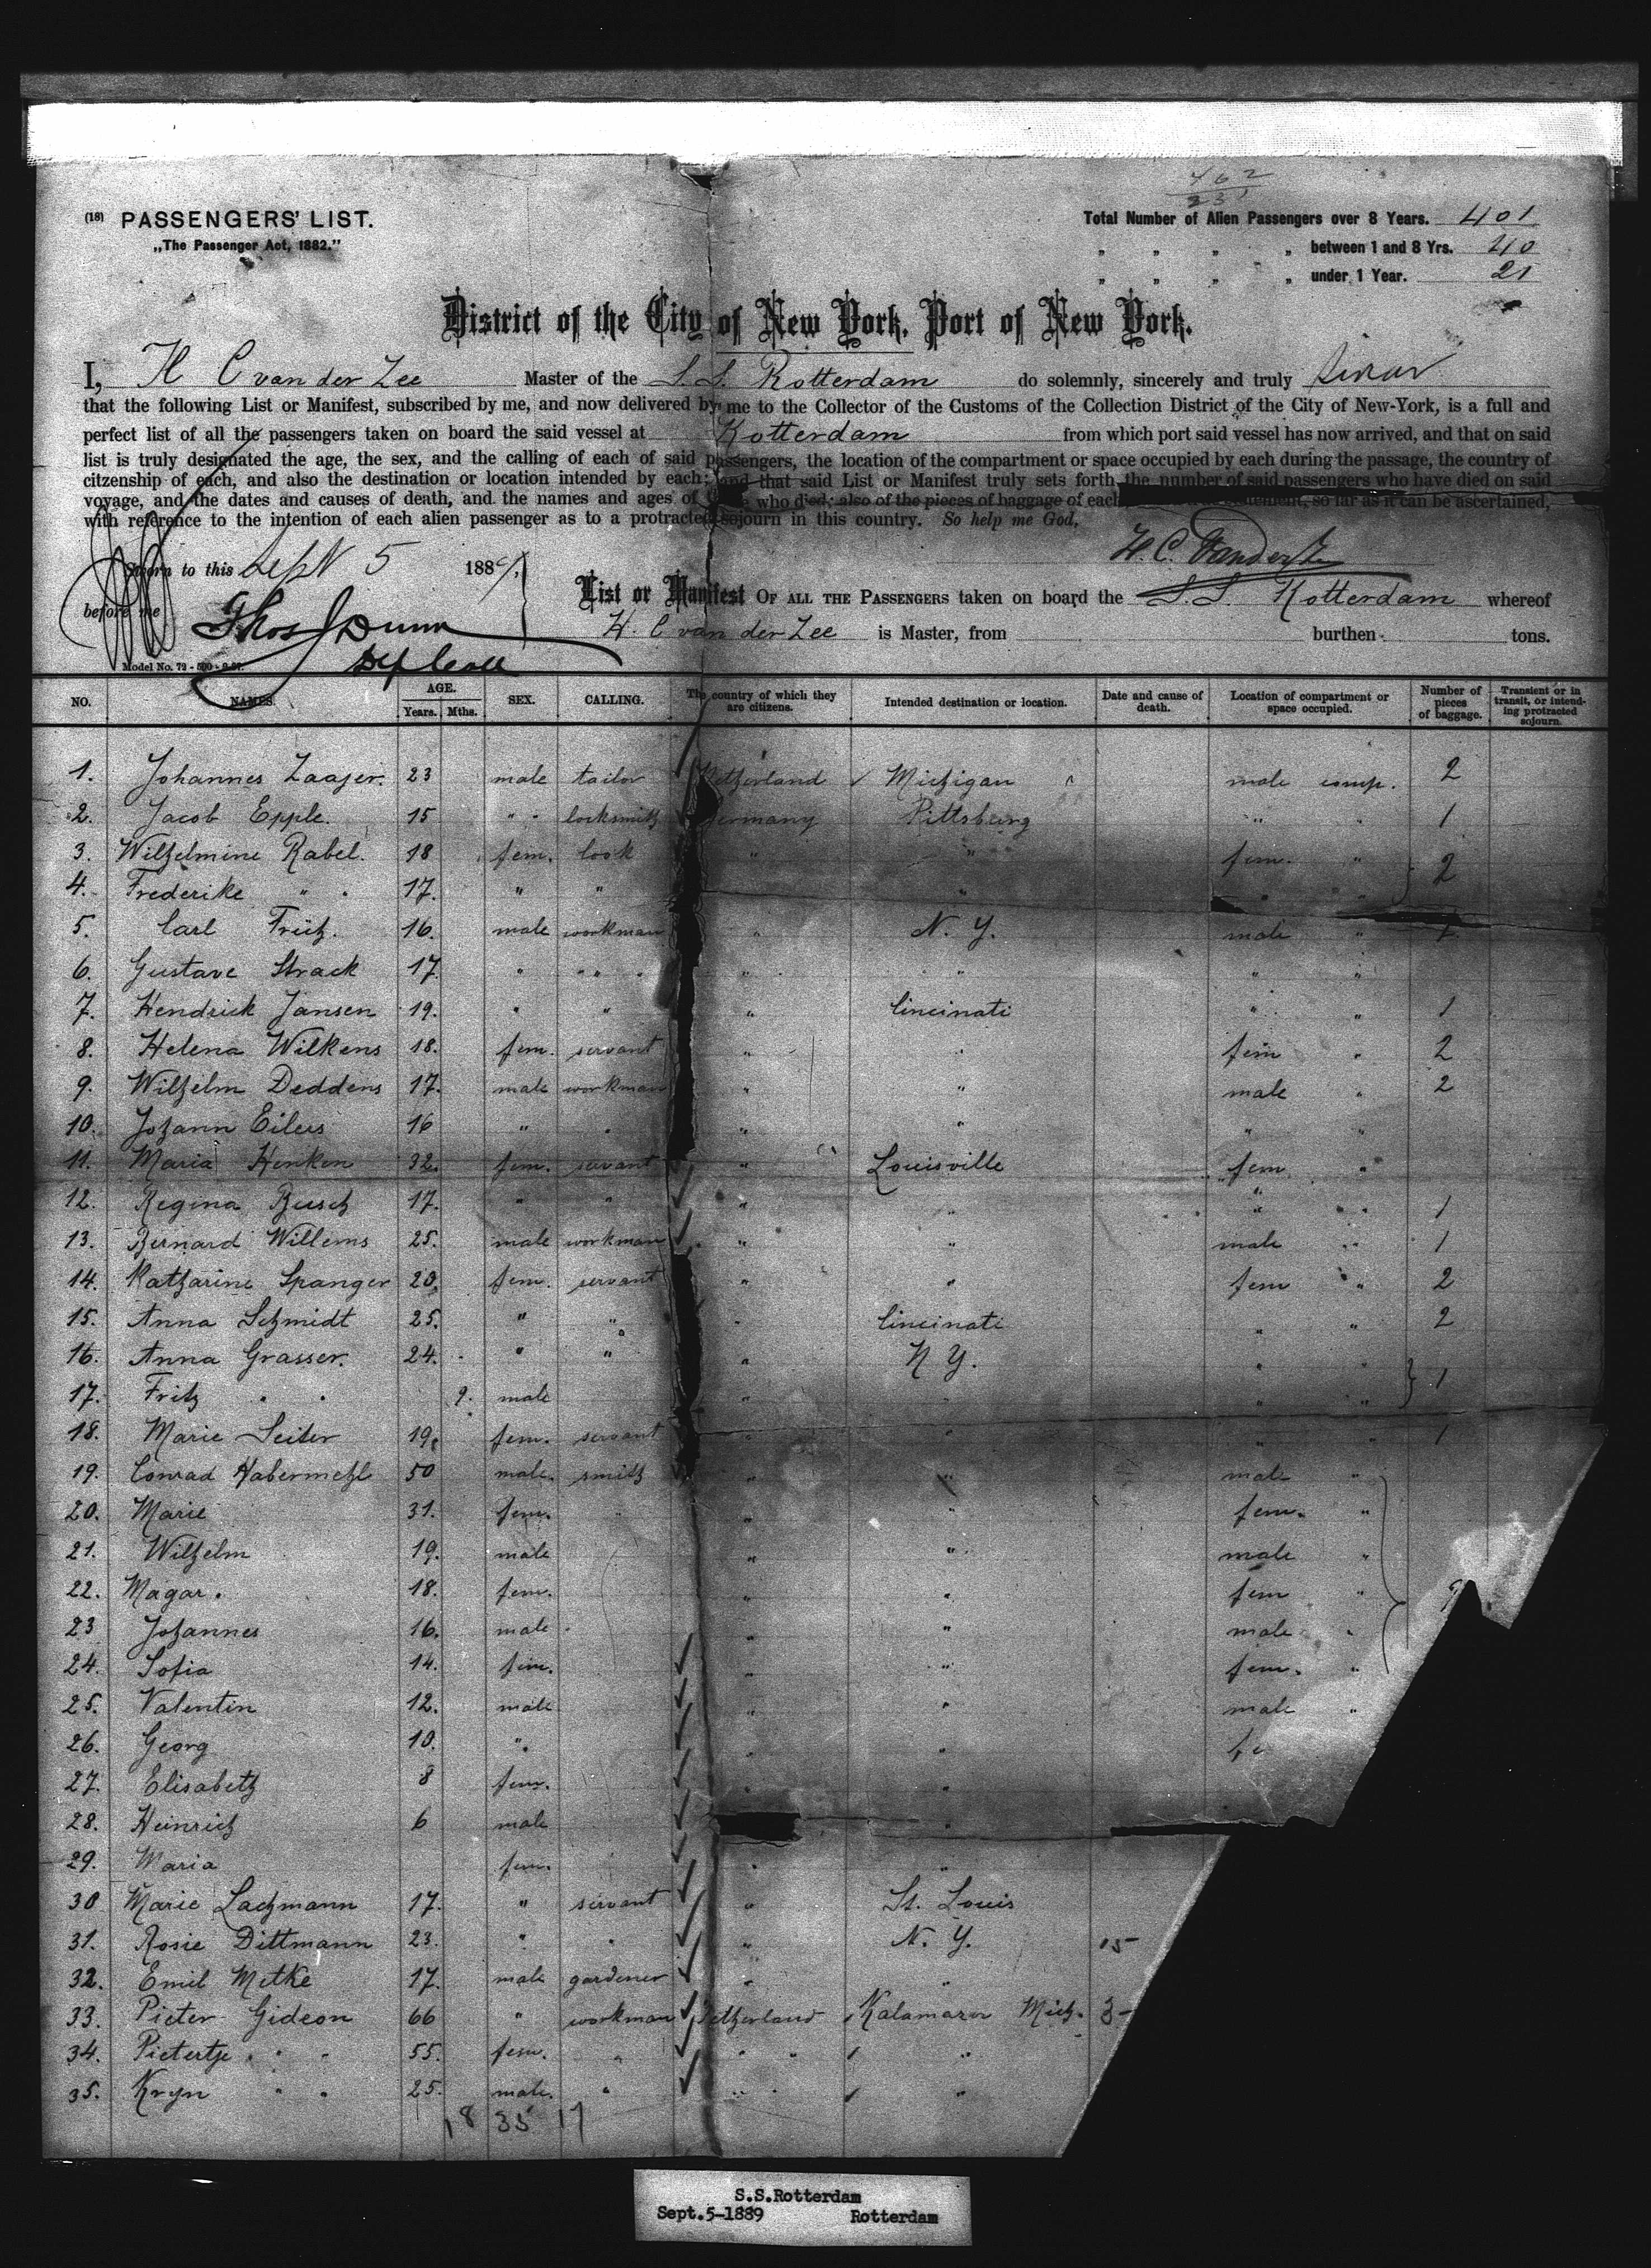 462
231
(18) PASSENGERS' LIST.
„The Passenger Act, 1882."
Total Number of Alien Passengers over 8 Years. 401
„ „ „ „ between 1 and 8 Yrs. 40
„ „ „ „ under 1 Year. 21
District of the City of New York, Port of New York.
I, H C van der Zee Master of the S.S. Rotterdam do solemnly, sincerely and truly swear
that the following List or Manifest, subscribed by me, and now delivered by me to the Collector of the Customs of the Collection District of the City of New-York, is a full and
perfect list of all the passengers taken on board the said vessel at Rotterdam from which port said vessel has now arrived, and that on said
list is truly designated the age, the sex, and the calling of each of said passengers, the location of the compartment or space occupied by each during the passage, the country of
citzenship of each, and also the destination or location intended by each; and that said List or Manifest truly sets forth the number of said passengers who have died on said
voyage, and the dates and causes of death, and the names and ages of who died; also of the pieces of baggage of each so far as it can be ascertained,
with reference to the intention of each alien passenger as to a protracted sojourn in this country. So help me God,
H. C. Vanderzee
Sworn to this Sept 5 1889
before me Thos J Dunn
Dep Coll
List or Manifest OF ALL THE PASSENGERS taken on board the S.S. Rotterdam whereof
H. C van der Zee is Master, from burthen tons.
Model No. 73 - 500 - 9-87.
NO. NAMES. AGE. Years. Mths. SEX. CALLING. The country of which they are citizens. Intended destination or location. Date and cause of death. Location of compartment or space occupied. Number of pieces of baggage. Transient or in transit, or intending protracted sojourn.
1. Johannes Zaajer. 23 male tailor Netherland Michigan male comp. 2
2. Jacob Epple. 15 " locksmith Germany Pittsburg " " 1
3. Wilhelmine Rabel. 18 fem. cook " " fem. " 2
4. Frederike " 17. " " " " "
5. Carl Fritz. 16. male workman " N. Y. male " 1
6. Gustave Strack 17. " " " " " "
7. Hendrick Jansen 19. " " " Cincinati " " 1
8. Helena Wilkens 18. fem. servant " " fem " 2
9. Wilhelm Deddens 17. male workman " " male " 2
10. Johann Eilers 16 " " " " " "
11. Maria Henken 32. fem. servant " Louisville fem "
12. Regina Busch 17. " " " " " " 1
13. Bernard Willems 25. male workman " " male " 1
14. Katharine Spanger 20. fem. servant " " fem " 2
15. Anna Schmidt 25. " " " Cincinati " " 2
16. Anna Grasser. 24. " " " N Y. " " 1
17. Fritz " 9. male " " " "
18. Marie Seiter 19. fem. servant " " " " 1
19. Conrad Habermehl 50 male. smith " " male "
20. Marie 31. fem. " " fem. "
21. Wilhelm 19. male " " male "
22. Magar. 18. fem. " " fem "
23 Johannes 16. male " " male "
24. Sofia 14. fem. " " fem. "
25. Valentin 12. male " " male "
26. Georg 10. " " "
27. Elisabeth 8 fem. " "
28. Heinrich 6 male "
29. Maria fem. " "
30 Marie Lachmann 17. " servant " St. Louis
31. Rosie Dittmann 23. " " " N. Y. 15
32. Emil Metke 17. male gardener " "
33. Pieter Gideon 66 " workman Netherland Kalamazoo Mich. 3
34. Pietertje " 55. fem. " " "
35. Kryn " 25. male. " " "
18 35 17
S.S.Rotterdam
Sept.5-1889 Rotterdam